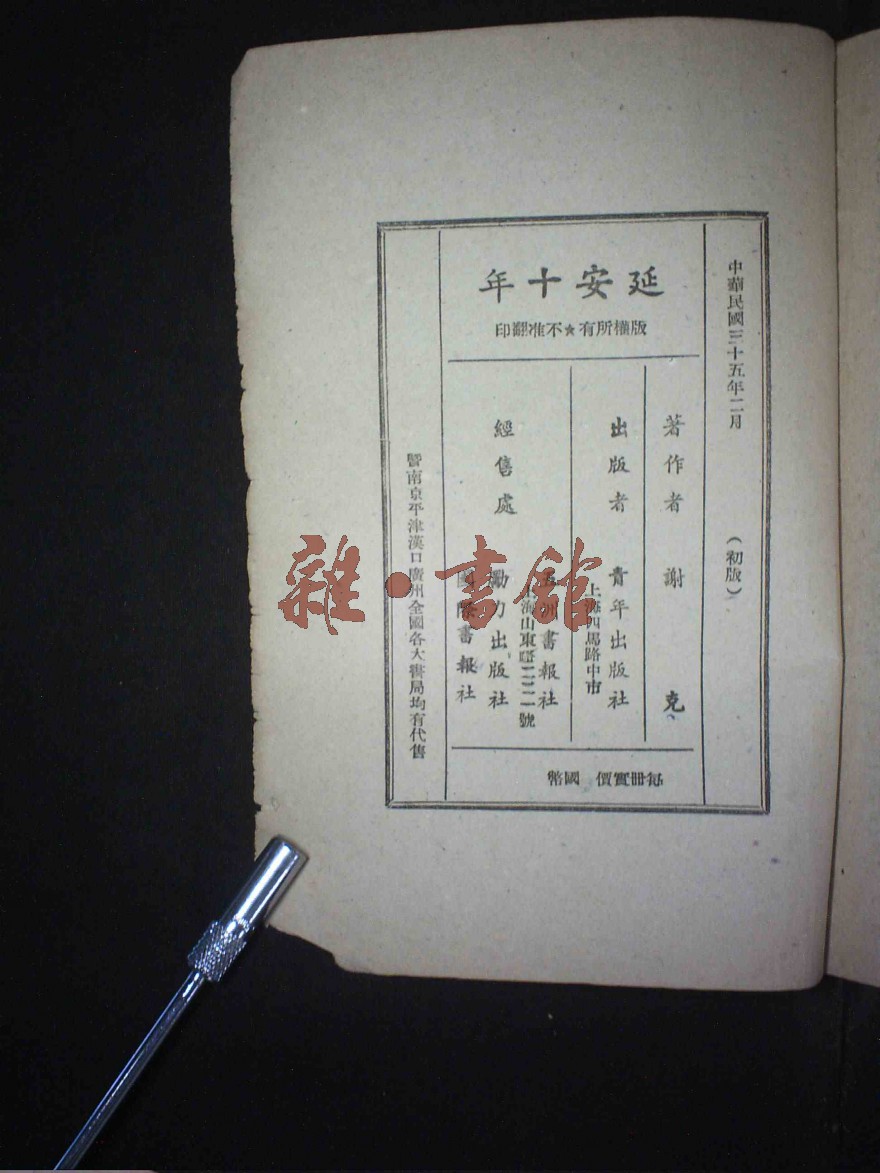 中華民國三十五年二月 (初版)
延安十年
版權所有★不准翻印
著作者 謝克
出版者 青年出版社
上海四馬路中市
經售處
五洲書報社
上海山東路二二一號
勵力出版社
國際書報社
每冊實價 國幣
暨南京平津漢口廣州全國各大書局均有代售
雜·書館